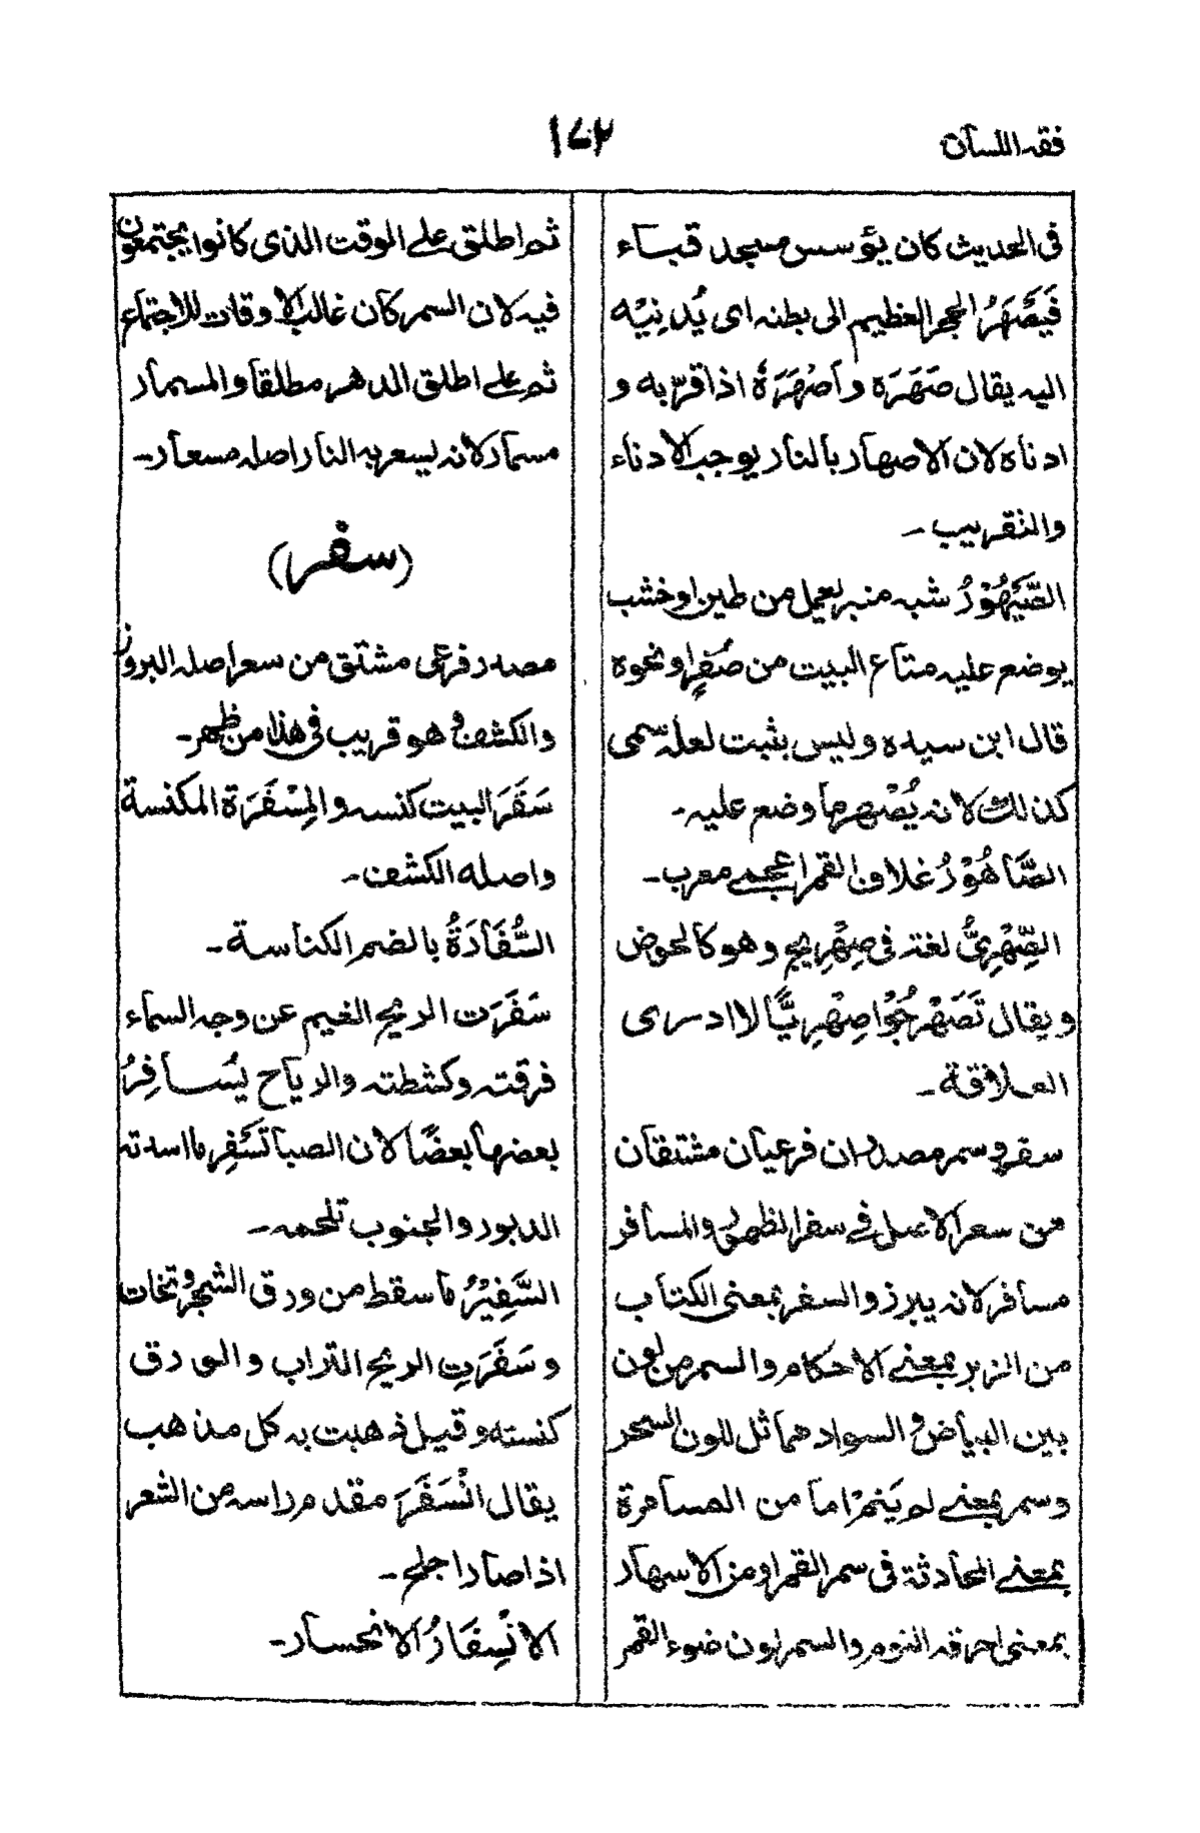 فقه اللسان
١٧٢
فى الحديث كان يؤسس مسجد قباء
فَيَصْهَرُ الحجر العظيم الى بطنه اى يُدنِيْه
اليه يقال صَهَرَه و اَصْهَرَهٗ اذا قرّبه و
ادناه لان الاصهار بالنار يوجب الادناء
والتقريب -
الصَّيْهُوْرُ شبه منبر يعمل من طين او خشب
يوضع عليه متاع البيت من صُفْرٍ او نحوه
قال ابن سيده وليس بثبت لعله سمى
كذلك لانه يُصْهر ما وضع عليه -
الصَّاهُوْرُ غلاف القمر اعجمے معرب -
الصِّهْرِىُّ لغة فى صِهْرِيج وهو كالحوض
ويقال تَصَهْرَجُوْا صِهْرِيًّا لا ادرى
العلاقة -
سفر و سمر مصدران فرعيان مشتقان
من سعر الاصل فے سفر الظهور والمسافر
مسافر لانه يبرز والسفر بمعنى الكتاب
من الزبر بمعنے الاحكام والسمر من لون
بين البياض و السواد مماثل للون السحر
وسمر بمعنے لم يَنَمْ اما من المسامرة
بمعنے المحادثة فى سمر القمر او من الاسهار
بمعنى احرقه النوم والسمر لون ضوء القمر
ثم اطلق على الوقت الذى كانوا يجتمعون
فيه لان السمر كان غالب الاوقات للاجتماع
ثم على اطلق الدهر مطلقا والمسمار
مسمار لانه ليسعر به النار اصله مسعار -
(سفر)
مصدر فرعى مشتق من سعر اصله البروز
والكشف و هو قريب فى هذا من ظهر -
سَفَرَ البيت كنسه و المِسْفَرَة المكنسة
واصله الكشف -
السُّفَارَةُ بالضم الكناسة -
سَفَرَت الريح الغيم عن وجه السماء
فرقته وكشطته والرياح يُسافِرُ
بعضها بعضًا لان الصبا تَسْفِر ما اسدته
الدبور والجنوب تلحمه -
السَّفِيْرُ ما سقط من ورق الشجر و تحات
و سَفَرَتِ الريح التراب و الورق
كنسته و قيل ذهبت به كل مذهب
يقال انْسَفَرَ مقدم راسه من الشعر
اذا صار اجلح -
الانْسِفَارُ الانحسار -